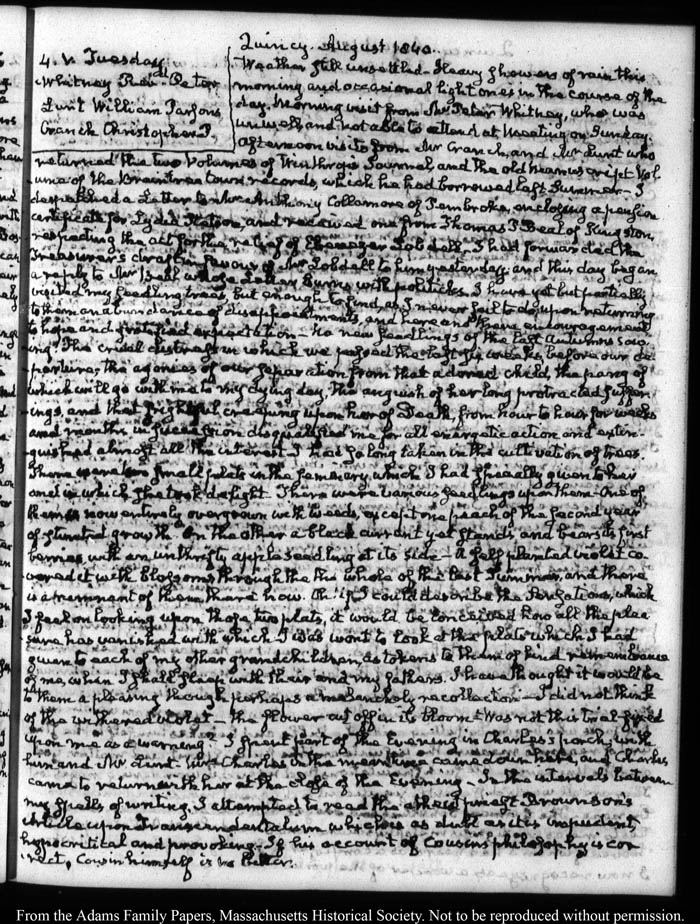 Quincy. August 1840.
4. V. Tuesday
Whitney Revd. Peter
Lunt William Parsons
Cranch Christopher P.
Weather still unsettled. Heavy showers of rain this
morning and occasional light ones in the course of the
day. Morning visit from Mr Peter Whitney, who was
unwell, and not able to attend at Meeting on Sunday.
Afternoon visits from Mr Cranch, and Mr Lunt who
returned the two Volumes of Winthrop's Journal, and the old manuscript Vol-
ume of the Braintree town records, which he had borrowed last Summer. I
despatched a Letter to Anthony Collamore of Pembroke, enclosing a pension
certificate for Lydia and received one from Thomas P. Beal of Kingston,
respecting the act for the relief of Ebenezer Lobdell. I had forwarded the
Treasurer's draft in favour of Mr Lobdell to him yesterday, and this day began
a reply to Mr Beal whose Letter burns with politicks. I have yet but partially
visited my seedling trees, but enough to find, as I never fail to do, upon returning
to them an abundance of disappointments, and here and there encouragement
to hope and profitted expectation— No new seedlings of the last Autumn's sow-
ing. The cruel distress in which we passed the last six weeks before our de-
parture, the agonies of our separation from that adored child, the pang of
which will go with me to my dying day, the anguish of her long protracted suffer-
ings, and that frightful creeping upon her of Death, from hour to hour for weeks
and months in succession disqualified me for all energetic action and extin-
guished almost all the interest I had so long taken in the cultivation of trees.
There were two small plats in the seminary which I had specially given to her
and in which she took delight. There were various seedlings upon them— One of
them is now entirely overgrown with weeds, except one peach of the second year
of stunted growth. On the other a black currant yet stands and bears its first
berries with an unthrifty apple seedling at its side— A self planted violet co-
vered it with blossoms through the the whole of the last Summer, and there
is a remnant of them there now. Oh! if I could describe the Sensations, which
I feel on looking upon those two plats, it would be conceived how all the plea-
sure has vanished with which I was wont to look at the plats which I had
given to each of my other grandchildren, as tokens to them of kind remembrance
of me, when I shall sleep with their and my fathers. I have thought it would be
to them a pleasing though perhaps a melancholy recollection— I did not think
of the withered violet— the flower cut off in its bloom— Was not this trial fixed
upon me as a warning? I spent part of the Evening in Charles's porch, with
him and Mr Lunt. Mrs Charles in the meantime came down here, and Charles
came to return with her at the close of the Evening— In the intervals between
my spells of writing, I attempted to read the atheist priest Brownson's
Article upon Transcendentalism which is as dull as it is impudent,
hypocritical and provoking— If his account of Cousin's philosophy is cor-
rect, Cousin himself is no better.
From the Adams Family Papers, Massachusetts Historical Society. Not to be reproduced without permission.